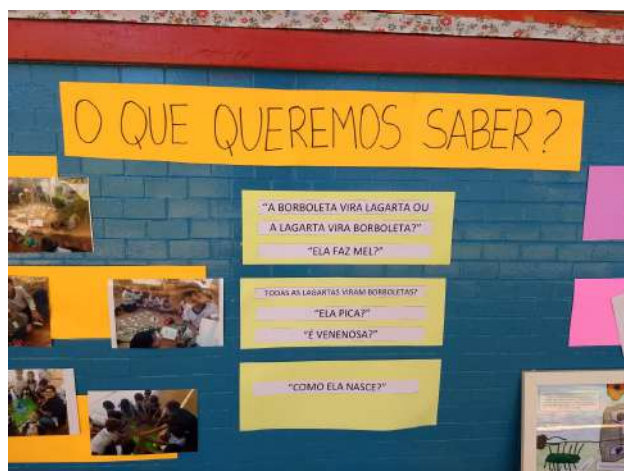 O QUE QUEREMOS SABER?
"A BORBOLETA VIRA LAGARTA OU
A LAGARTA VIRA BORBOLETA?"
"ELA FAZ MEL?"
TODAS AS LAGARTAS VIRAM BORBOLETAS?
"ELA PICA?"
"É VENENOSA?"
"COMO ELA NASCE?"